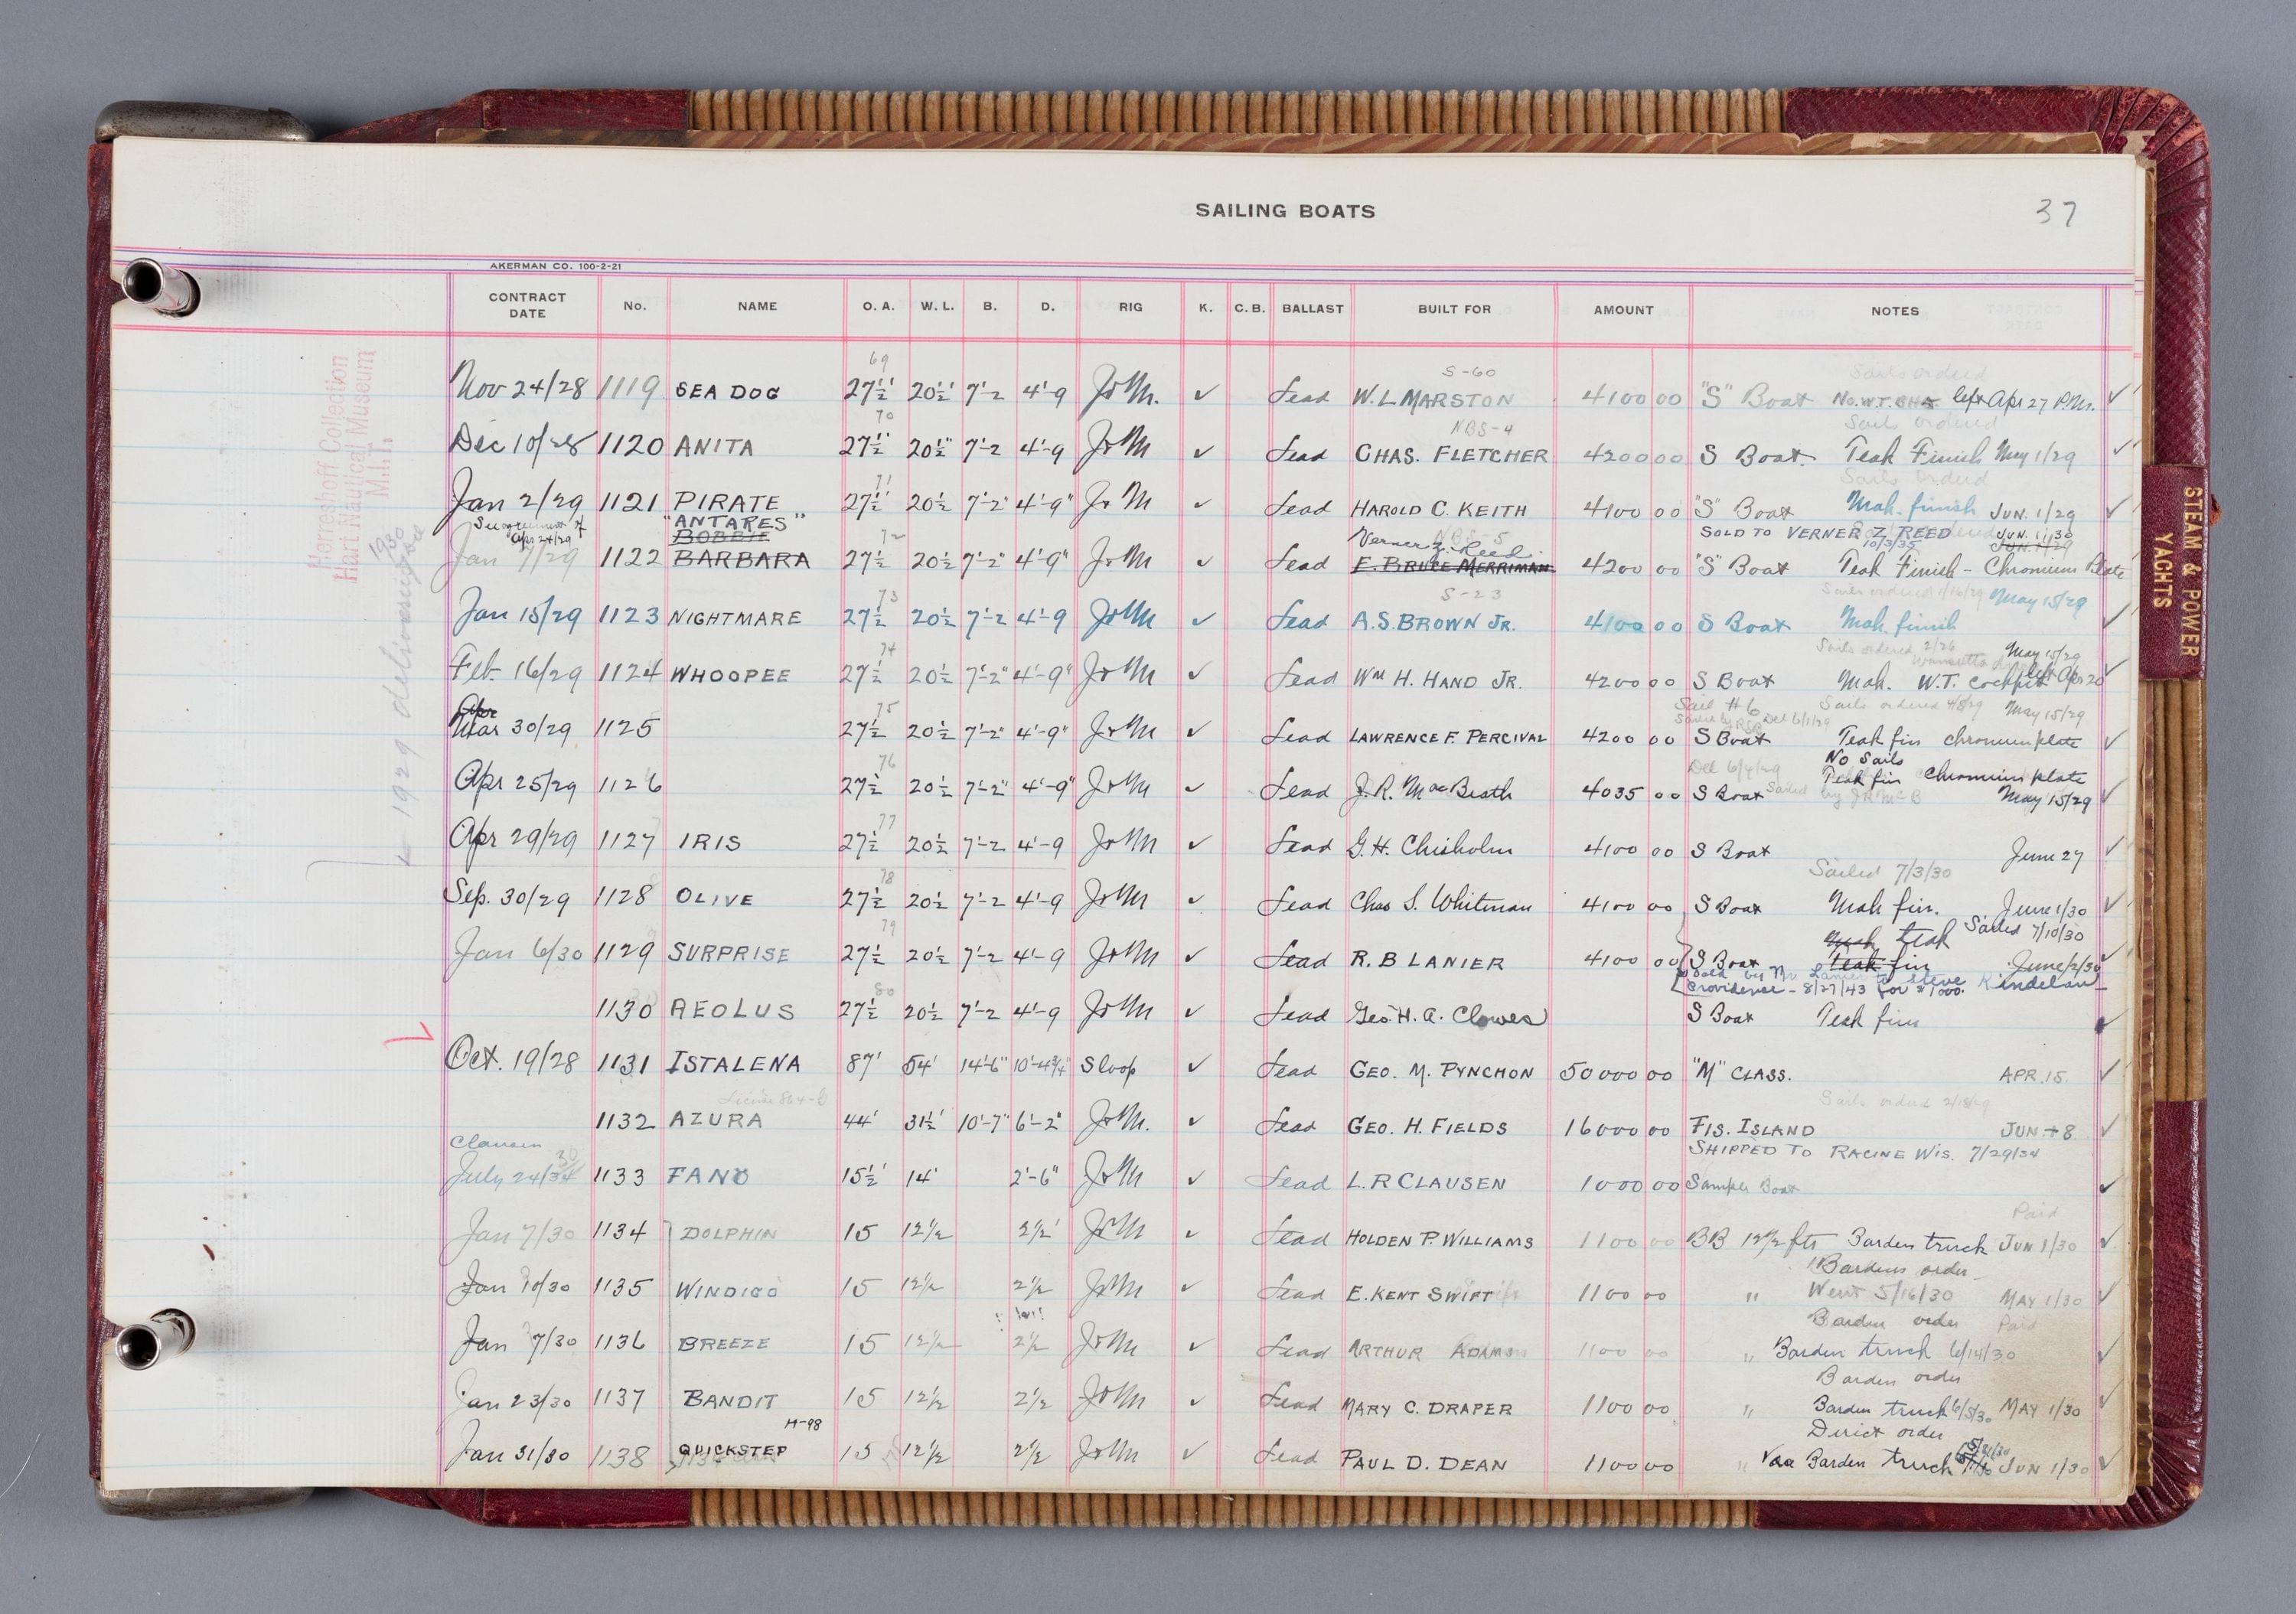 SAILING BOATS 37
AKERMAN CO. 100-2-21
CONTRACT DATE No. NAME O. A. W. L. B. D. RIG K. C. B. BALLAST BUILT FOR AMOUNT NOTES
69 S-60 Sails ordered
Nov 24/28 1119 SEA DOG 27½' 20½' 7'-2 4'-9 J&M. ✓ Lead W. L MARSTON 4100 00 "S" Boat No. W.T. left Apr 27 P.M. ✓
70 NBS-4 Sails ordered
Dec 10/28 1120 ANITA 27½' 20½" 7'-2 4'-9 J&M ✓ Lead CHAS. FLETCHER 4200 00 S Boat. Teak Finish May 1/29 ✓
71 Sails ordered
Jan 2/29 1121 PIRATE 27½' 20½ 7'-2" 4'-9" J&M ✓ Lead HAROLD C. KEITH 4100 00 "S" Boat Mah. finish JUN. 1/29 ✓
Apr 24/29 "ANTARES" BOBBIE 72 NBS-5 Verner Z. Reed SOLD TO VERNER Z REED 10/3/35 JUN. 1/30 JUN. 1/29
Jan 7/29 1122 BARBARA 27½ 20½ 7'-2" 4'-9" J&M ✓ Lead E. BRUCE MERRIMAN 4200 00 "S" Boat Teak Finish - Chromium Plate
73 S-23 Sails ordered 1/16/29 May 15/29
Jan 15/29 1123 NIGHTMARE 27½ 20½ 7'-2 4'-9 J&M ✓ Lead A. S. BROWN JR. 4100 00 S Boat Mah. finish ✓
74 Sails ordered 2/26 May 15/29
Feb 16/29 1124 WHOOPEE 27½ 20½ 7'-2" 4'-9" J&M ✓ Lead WM H. HAND JR. 4200 00 S Boat Mah. W.T. Cockpit left Apr 20 ✓
Apr 75 Sail #6 Del 6/1/29 Sails ordered 4/8/29 May 15/29
Mar 30/29 1125 27½ 20½ 7'-2" 4'-9" J&M ✓ Lead LAWRENCE F. PERCIVAL 4200 00 S Boat Teak fin chromium plate ✓
76 Del 6/4/29 No Sails
Teak fin Chromium plate
Apr 25/29 1126 27½ 20½ 7'-2" 4'-9" J&M ✓ Lead J. R. MacBeath 4035 00 S Boat Sailed by J R McB May 15/29 ✓
77
Apr 29/29 1127 IRIS 27½ 20½ 7'-2 4'-9 J&M ✓ Lead G. H. Chisholm 4100 00 S Boat June 27 ✓
78 Sailed 7/3/30
Sep. 30/29 1128 OLIVE 27½ 20½ 7'-2 4'-9 J&M ✓ Lead Chas S. Whitman 4100 00 S Boat Mah fin. June 1/30 ✓
79 Mah teak Sailed 7/10/30
Jan 6/30 1129 SURPRISE 27½ 20½ 7'-2 4'-9 J&M ✓ Lead R. B LANIER 4100 00 S Boat Teak fin June/2/30 ✓
80 Sold by Mr Lanier to Steve Kindelan
Providence - 8/27/43 for $1000.
1130 AEOLUS 27½ 20½ 7'-2 4'-9 J&M ✓ Lead Geo. H. A. Clowes S Boat Teak fin ✓
Oct. 19/28 1131 ISTALENA 87' 54' 14'-6" 10'-4¾" Sloop ✓ Lead GEO. M. PYNCHON 50000 00 "M" CLASS. APR. 15. ✓
Sails ordered 2/18/29
1132 AZURA 44' 31½' 10'-7" 6'-2" J&M. ✓ Lead GEO. H. FIELDS 16000 00 FIS. ISLAND JUN. 8 ✓
Clausen 30 SHIPPED TO RACINE WIS. 7/29/34
July 24/34 1133 FANO 15½' 14' 2'-6" J&M ✓ Lead L. R CLAUSEN 1000 00 Sample Boat ✓
Paid
Jan 7/30 1134 DOLPHIN 15 12½ 2½' J&M ✓ Lead HOLDEN P. WILLIAMS 1100 00 BB 12½ ftr Barden truck JUN 1/30 ✓
Bardens order
Jan 10/30 1135 WINDIGO 15 12½ 2½ J&M ✓ Lead E. KENT SWIFT 1100 00 " Went 5/16/30 MAY 1/30 ✓
Barden order Paid
Jan 7/30 1136 BREEZE 15 12½ 2½ J&M ✓ Lead ARTHUR ADAMS 1100 00 " Barden truck 6/14/30 ✓
Barden order
Jan 23/30 1137 BANDIT 15 12½ 2½ J&M ✓ Lead MARY C. DRAPER 1100 00 " Barden truck 6/5/30 MAY 1/30 ✓
H-98 Direct order
Jan 31/30 1138 QUICKSTEP 15 12½ 2½ J&M ✓ Lead PAUL D. DEAN 1100 00 " Via Barden truck JUN 1/30 ✓
Herreshoff Collection
Hart Nautical Museum
M.I.T.
1930
← 1929 deliveries
STEAM & POWER
YACHTS